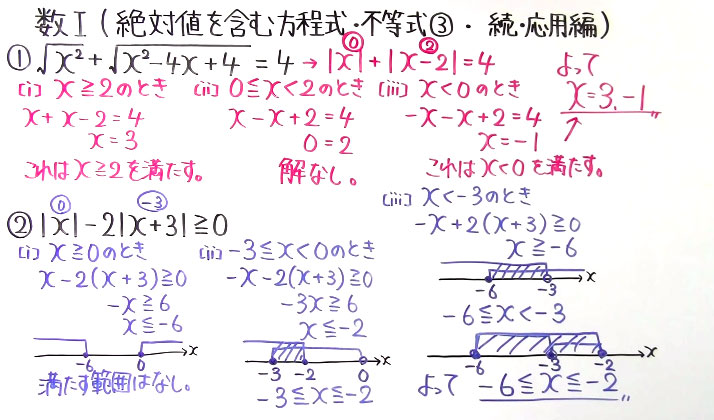 数I（絶対値を含む方程式・不等式③・続・応用編）
①√x² + √x²-4x+4 = 4 → |x| + |x-2| = 4
0 2
(i) x≧2のとき
x + x - 2 = 4
x = 3
これはx≧2を満たす。
(ii) 0≦x<2のとき
x - x + 2 = 4
0 = 2
解なし。
(iii) x<0のとき
-x - x + 2 = 4
x = -1
これはx<0を満たす。
よって
x = 3, -1
②|x| - 2|x+3| ≧ 0
0 -3
(i) x≧0のとき
x - 2(x+3) ≧ 0
-x ≧ 6
x ≦ -6
-6 0 x
満たす範囲はなし。
(ii) -3≦x<0のとき
-x - 2(x+3) ≧ 0
-3x ≧ 6
x ≦ -2
-3 -2 0 x
-3 ≦ x ≦ -2
(iii) x<-3のとき
-x + 2(x+3) ≧ 0
x ≧ -6
-6 -3 x
-6 ≦ x < -3
-6 -3 -2 x
よって -6 ≦ x ≦ -2